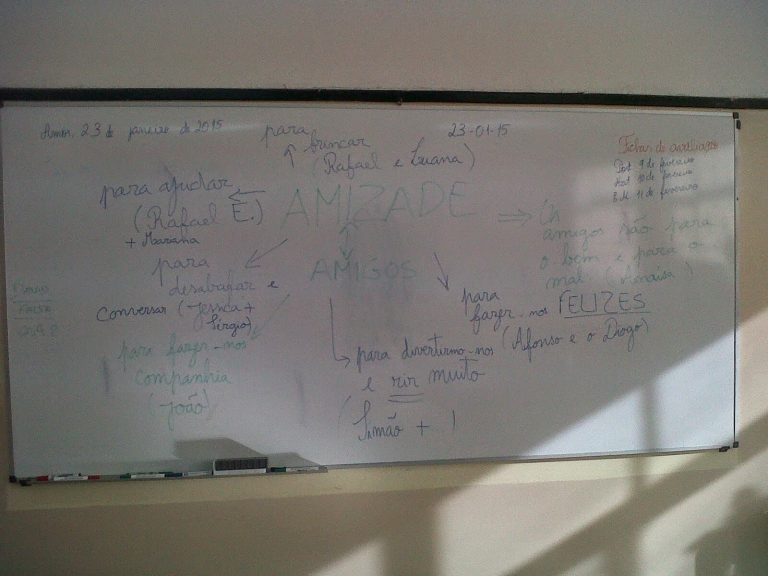 23 de janeiro de 2015
23-01-15
para
brincar
(Rafael e Luana)
Fichas de avaliação
Port 9 de fevereiro
Mat 10 de fevereiro
E.M 11 de fevereiro
para ajudar
(Rafael E.)
+ Mariana
AMIZADE
AMIGOS
Os
amigos são para
o bem e para o
mal (
para
desabafar e
conversar (Jessica +
Sérgio)
para
fazer-nos FELIZES
(Afonso e o Diogo)
para fazer-nos
companhia
(João)
para divertirmo-nos
e rir muito
(Simão + )